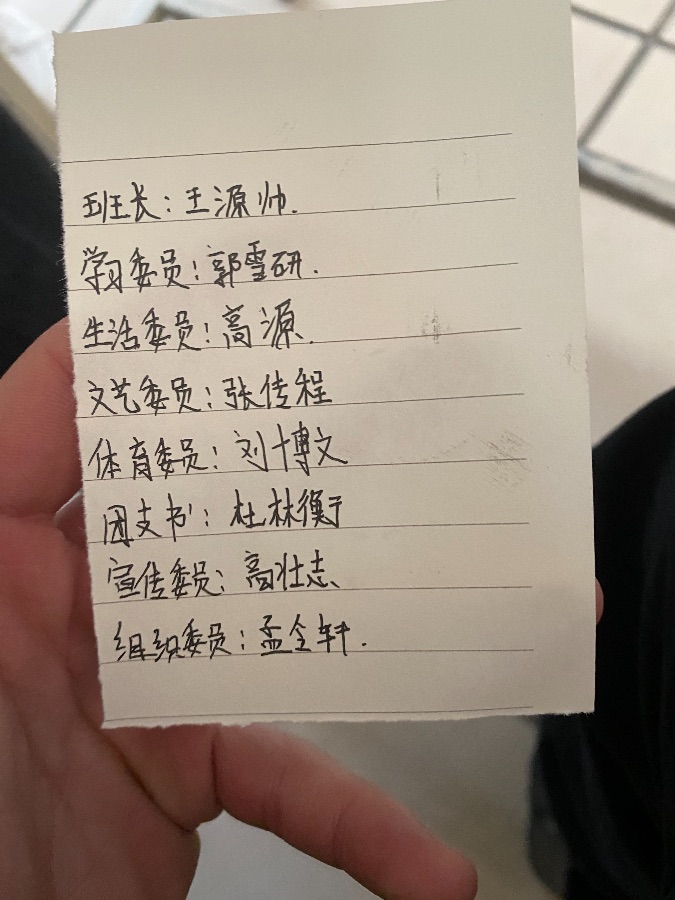 班长：王源帅.
学习委员：郭雪研.
生活委员：高源.
文艺委员：张传程
体育委员：刘博文
团支书：杜林衡
宣传委员：高壮志
组织委员：孟令轩.